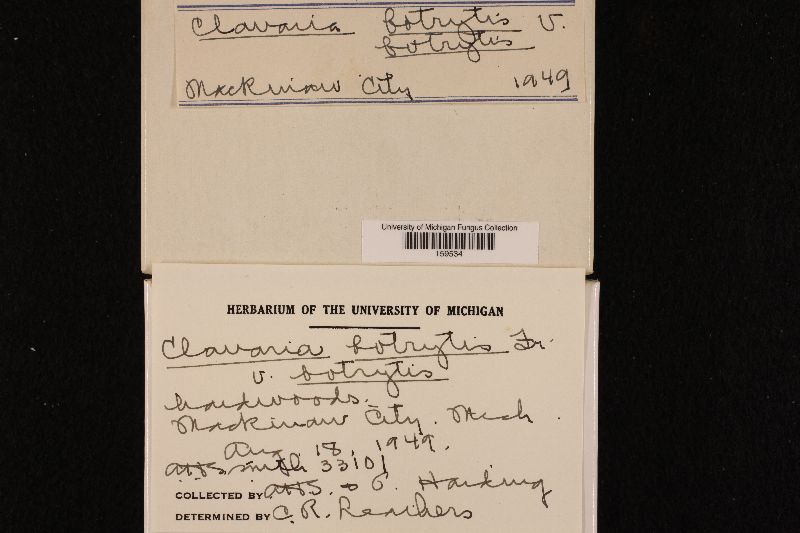 Clavaria botrytis v.
botrytis
Mackinaw City 1949
University of Michigan Fungus Collection
159534
HERBARIUM OF THE UNIVERSITY OF MICHIGAN
Clavaria botrytis Fr.
v. botrytis
hardwoods.
Mackinaw City. Mich.
Aug. 18, 1949.
Smith 33101
COLLECTED BY AHS.
DETERMINED BY C. R.